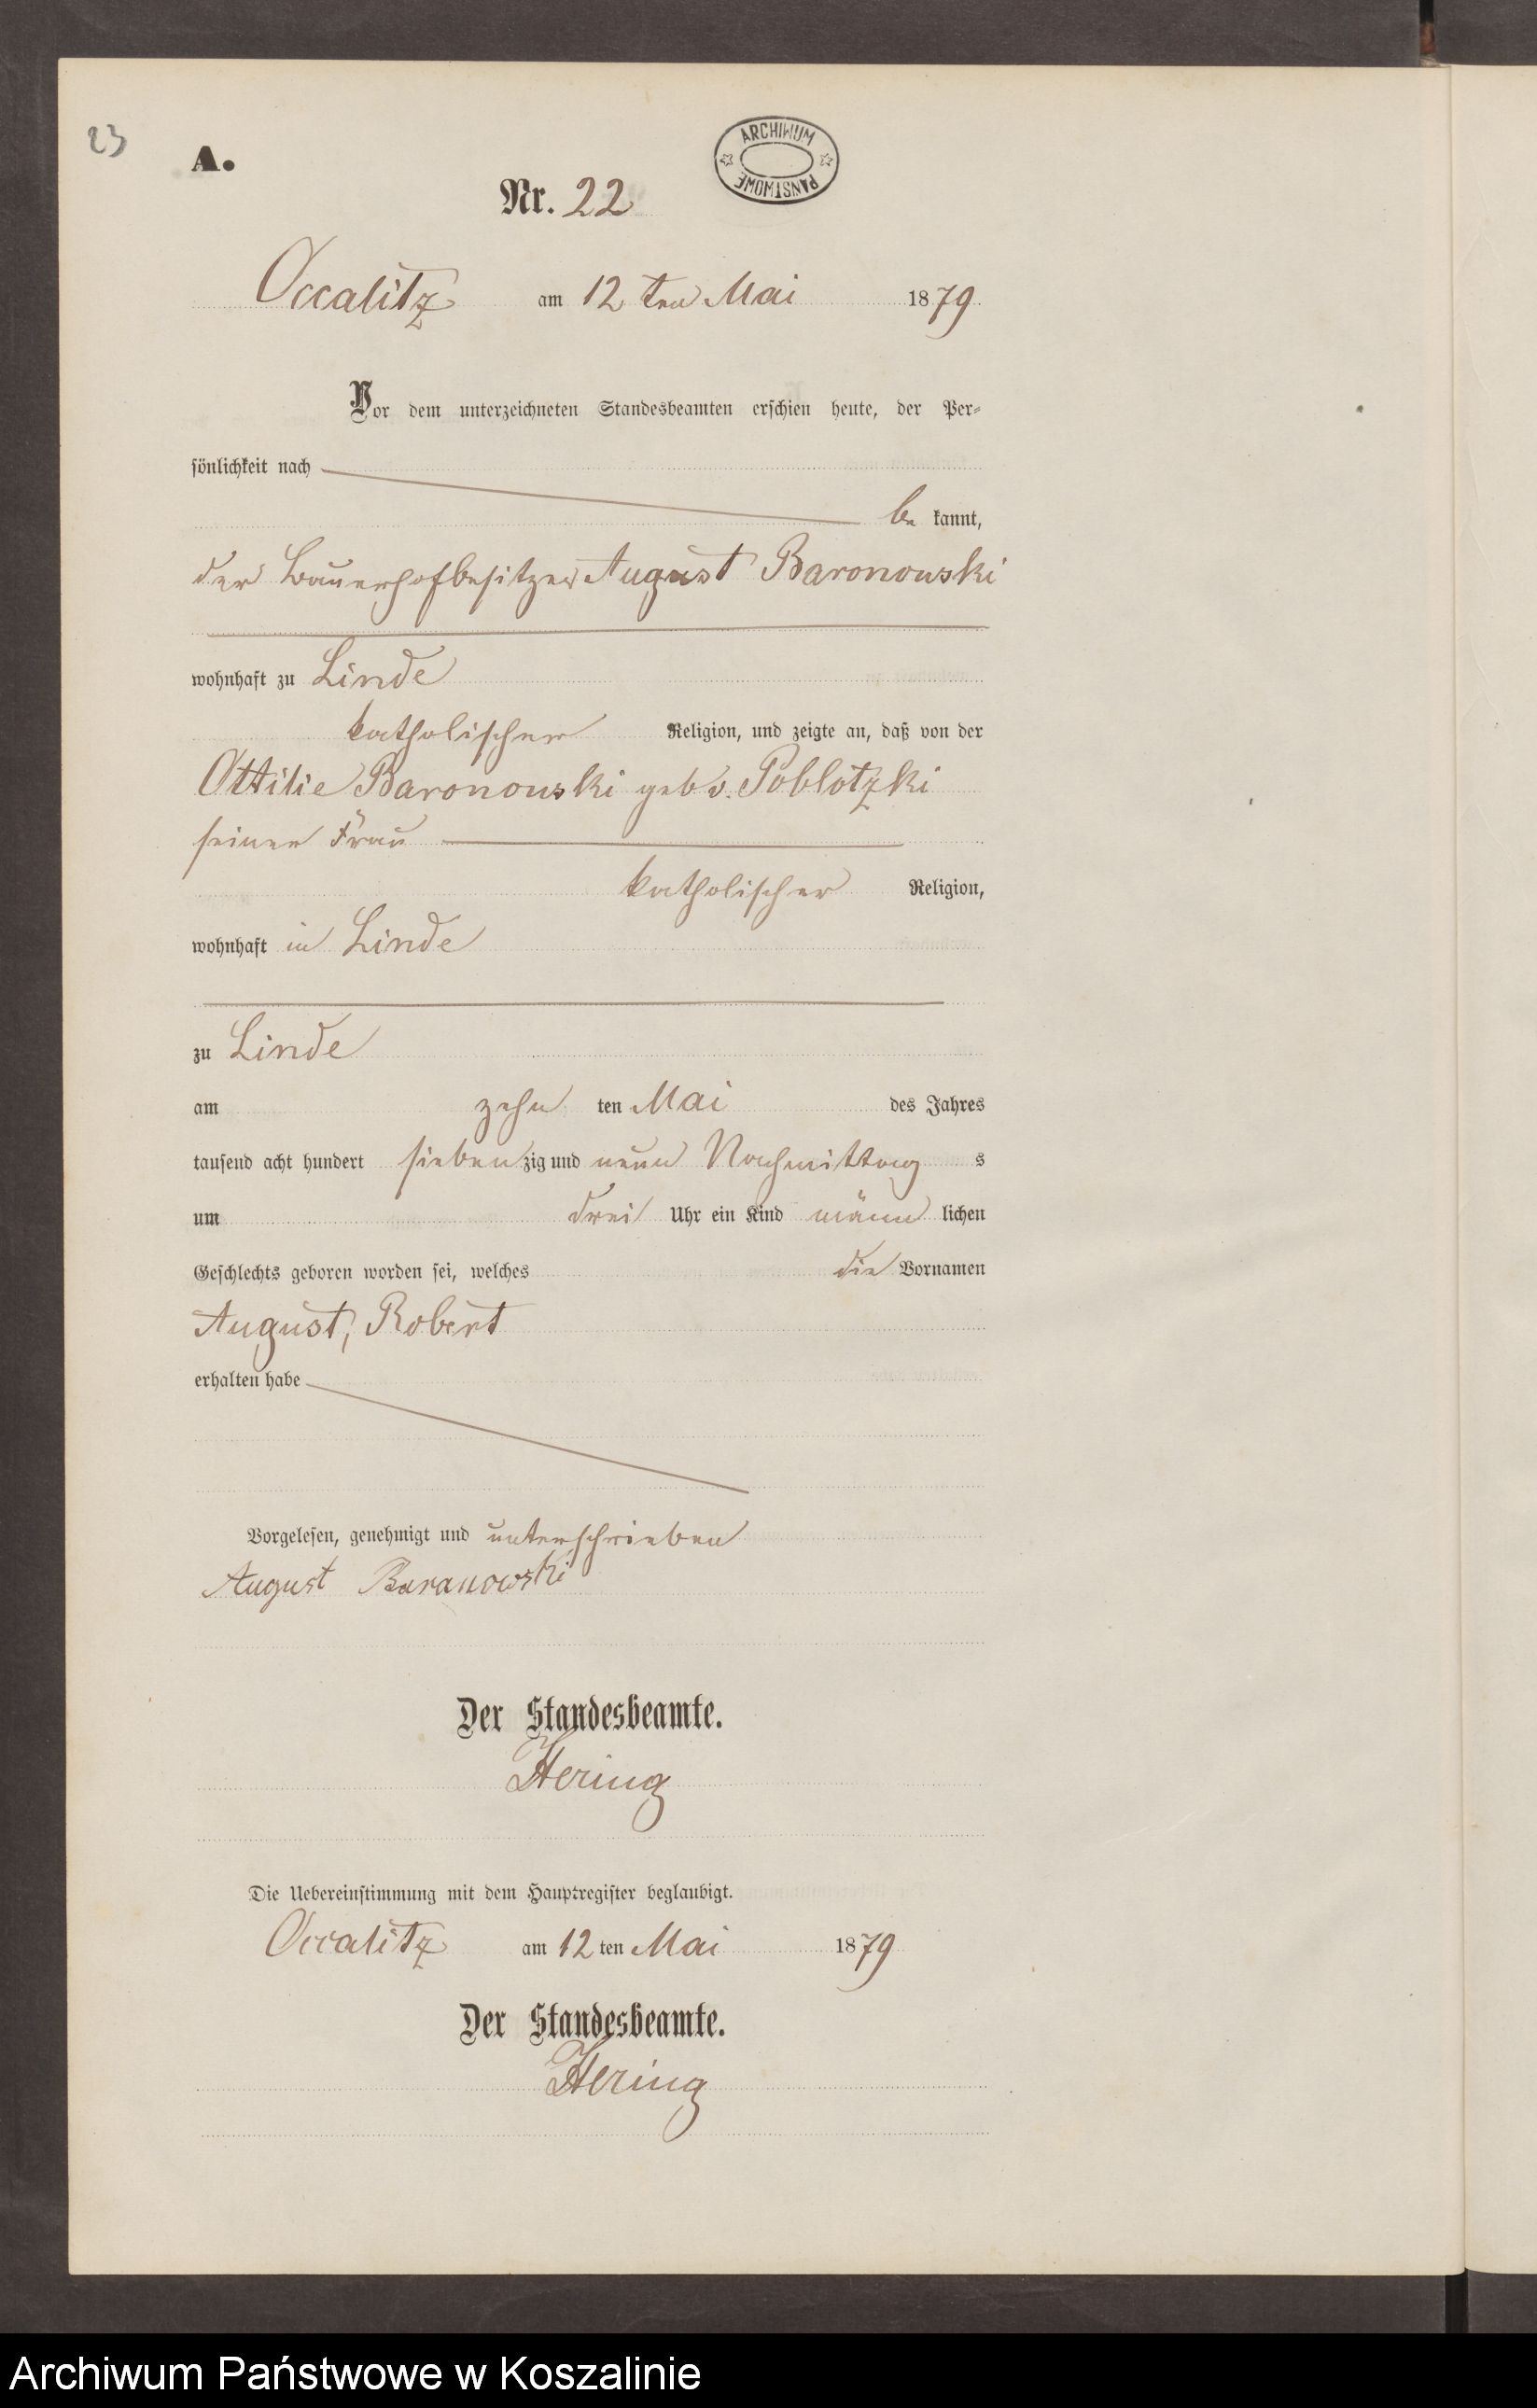 23
A.
ARCHIWUM PAŃSTWOWE
Nr. 22
Occalitz am 12 ten Mai 1879.
Vor dem unterzeichneten Standesbeamten erschien heute, der Per-
sönlichkeit nach
be kannt,
der Bauerhofbesitzer August Baronowski
wohnhaft zu Linde
katholischer Religion, und zeigte an, daß von der
Ottilie Baronowski geb v. Poblotzki
seiner Frau
katholischer Religion,
wohnhaft in Linde
zu Linde
am zehn ten Mai des Jahres
tausend acht hundert sieben zig und neun Nachmittag s
um drei Uhr ein Kind männ lichen
Geschlechts geboren worden sei, welches die Vornamen
August, Robert
erhalten habe
Vorgelesen, genehmigt und unterschrieben
August Baranowski
Der Standesbeamte.
Hering
Die Uebereinstimmung mit dem Hauptregister beglaubigt.
Occalitz am 12 ten Mai 1879
Der Standesbeamte.
Hering
Archiwum Państwowe w Koszalinie